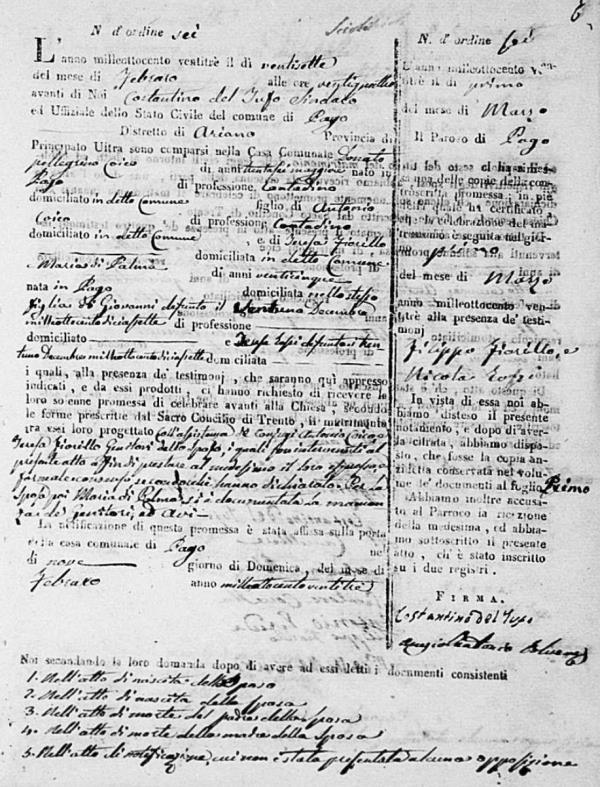 6
N. d'ordine sei
L'anno milleottocento ventitrè il dì ventisette
del mese di Febraro alle ore ventiquattro
avanti di Noi Costantino del Tufo Sindaco
ed Uffiziale dello Stato Civile del comune di Pago
Distretto di Ariano Provincia di
Principato Ultra sono comparsi nella Casa Comunale Donato
pellegrino Coico di anni trentasei maggiore nato in
Pago di professione Contadino
domiciliato in detto Comune figlio di Antonio
Coico di professione Contadino
domiciliato in detto Comune
, e di Teresa Fiorillo
domiciliata in detto Comune
Maria di Palma
di anni venticinque
nata in Pago domiciliata nello stesso
figlia di Giovanni defunto il ventuno Decembre
milleottocento diciassette di professione
domiciliato e
tuno Decembre milleottocento diciassette domiciliata
i quali, alla presenza de' testimonj, che saranno quì appresso
indicati, e da essi prodotti, ci hanno richiesto di ricevere la
loro solenne promessa di celebrare avanti alla Chiesa, secondo
le forme prescritte dal Sacro Concilio di Trento, il matrimonio
tra essi loro progettato coll'assistenza de Coniugi Antonio Coico, e
Teresa Fiorillo Genitori dello sposo, i quali son intervenuti al
presente atto affin di prestare al medesimo il loro espresso, e
formale consenso secondochè hanno dichiarato. Per la
Sposa poi Maria di Palma si è documentata la mancan
za de' genitori, ed Avi—
La notificazione di questa promessa è stata affissa sulla porta
della casa comunale di Pago nel
di nove giorno di Domenica, del mese di
Febraro anno milleottocento ventitrè
Noi secondando la loro domanda dopo di avere ad essi detti i documenti consistenti
1. Nell'atto di nascita dello sposo
2. Nell'atto di nascita della sposa
3. Nell'atto di morte del padre della sposa
4. Nell'atto di morte della madre della Sposa
5. Nell'atto di notificazione, cui non è stata presentata alcuna opposizione
N. d'ordine sei
L'anno milleottocento ven-
titrè il dì primo
del mese di Marzo
Il Paroco di Pago
ci ha rimes-
sa una delle copie della con-
troscritta promessa, in piè
della quale ha certificato,
che la celebrazione del ma-
trimonio è seguita nel gior-
no primo
del mese di Marzo
anno milleottocento ven-
titrè alla presenza de' testi-
monj
Filippo Fiorillo, e
Nicola
In vista di essa noi ab-
biamo disteso il presente
notamento, e dopo di aver-
la cifrata, abbiamo dispo-
sto, che fosse la copia an-
zidetta conservata nel volu-
me de' documenti al foglio Primo
Abbiamo inoltre accusa-
to al Parroco la ricezione
della medesima, ed abbia-
mo sottoscritto il presente
atto, ch'è stato inscritto
su i due registri.
FIRMA.
Costantino del Tufo